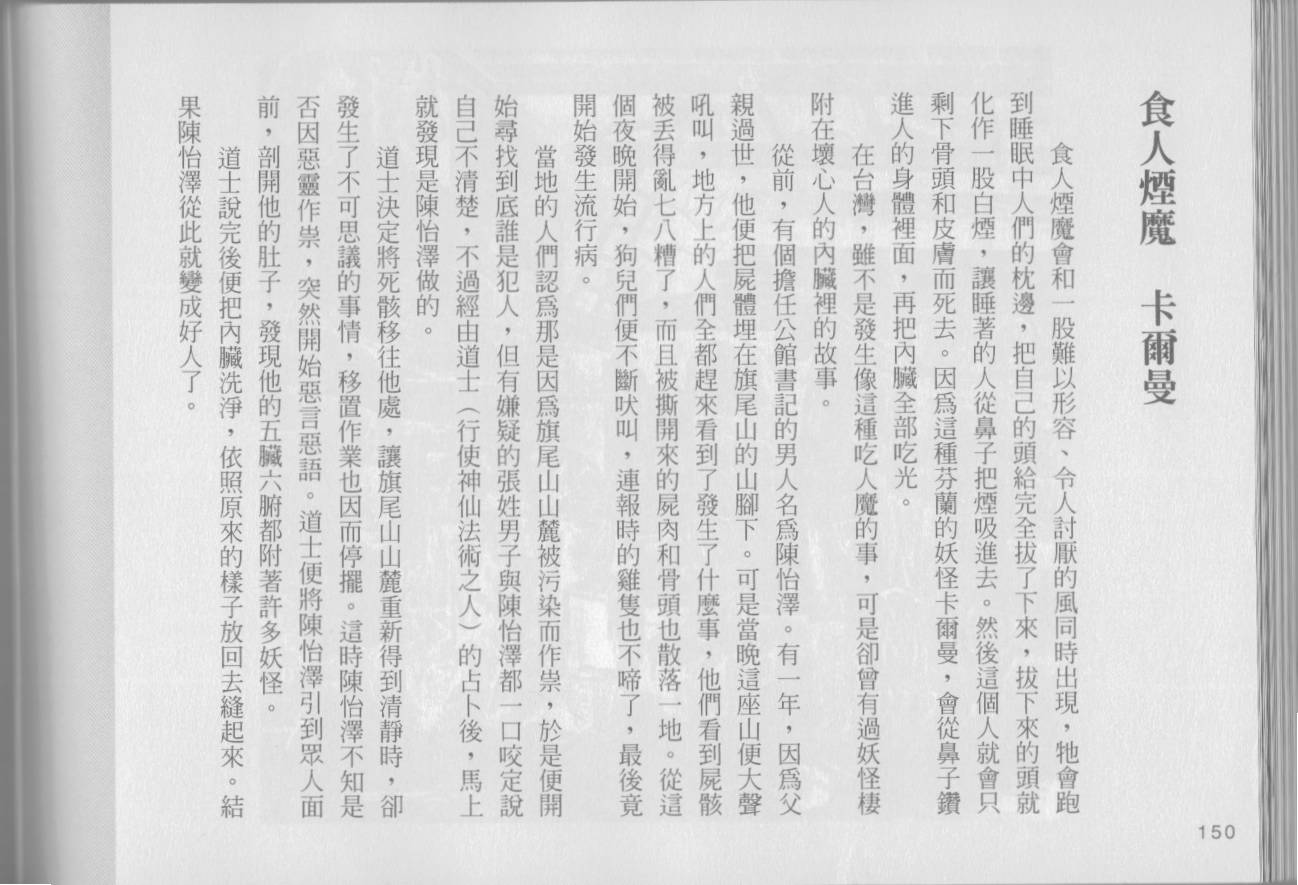 食人煙魔　卡爾曼
食人煙魔會和一股難以形容、令人討厭的風同時出現，牠會跑
到睡眠中人們的枕邊，把自己的頭給完全拔了下來，拔下來的頭就
化作一股白煙，讓睡著的人從鼻子把煙吸進去。然後這個人就會只
剩下骨頭和皮膚而死去。因爲這種芬蘭的妖怪卡爾曼，會從鼻子鑽
進人的身體裡面，再把內臟全部吃光。
在台灣，雖不是發生像這種吃人魔的事，可是卻曾有過妖怪棲
附在壞心人的內臟裡的故事。
從前，有個擔任公館書記的男人名爲陳怡澤。有一年，因爲父
親過世，他便把屍體埋在旗尾山的山腳下。可是當晚這座山便大聲
吼叫，地方上的人們全都趕來看到了發生了什麼事，他們看到屍骸
被丟得亂七八糟了，而且被撕開來的屍肉和骨頭也散落一地。從這
個夜晚開始，狗兒們便不斷吠叫，連報時的雞隻也不啼了，最後竟
開始發生流行病。
當地的人們認爲那是因爲旗尾山山麓被污染而作祟，於是便開
始尋找到底誰是犯人，但有嫌疑的張姓男子與陳怡澤都一口咬定說
自己不清楚，不過經由道士（行使神仙法術之人）的占卜後，馬上
就發現是陳怡澤做的。
道士決定將死骸移往他處，讓旗尾山山麓重新得到清靜時，卻
發生了不可思議的事情，移置作業也因而停擺。這時陳怡澤不知是
否因惡靈作祟，突然開始惡言惡語。道士便將陳怡澤引到眾人面
前，剖開他的肚子，發現他的五臟六腑都附著許多妖怪。
道士說完後便把內臟洗淨，依照原來的樣子放回去縫起來。結
果陳怡澤從此就變成好人了。
150